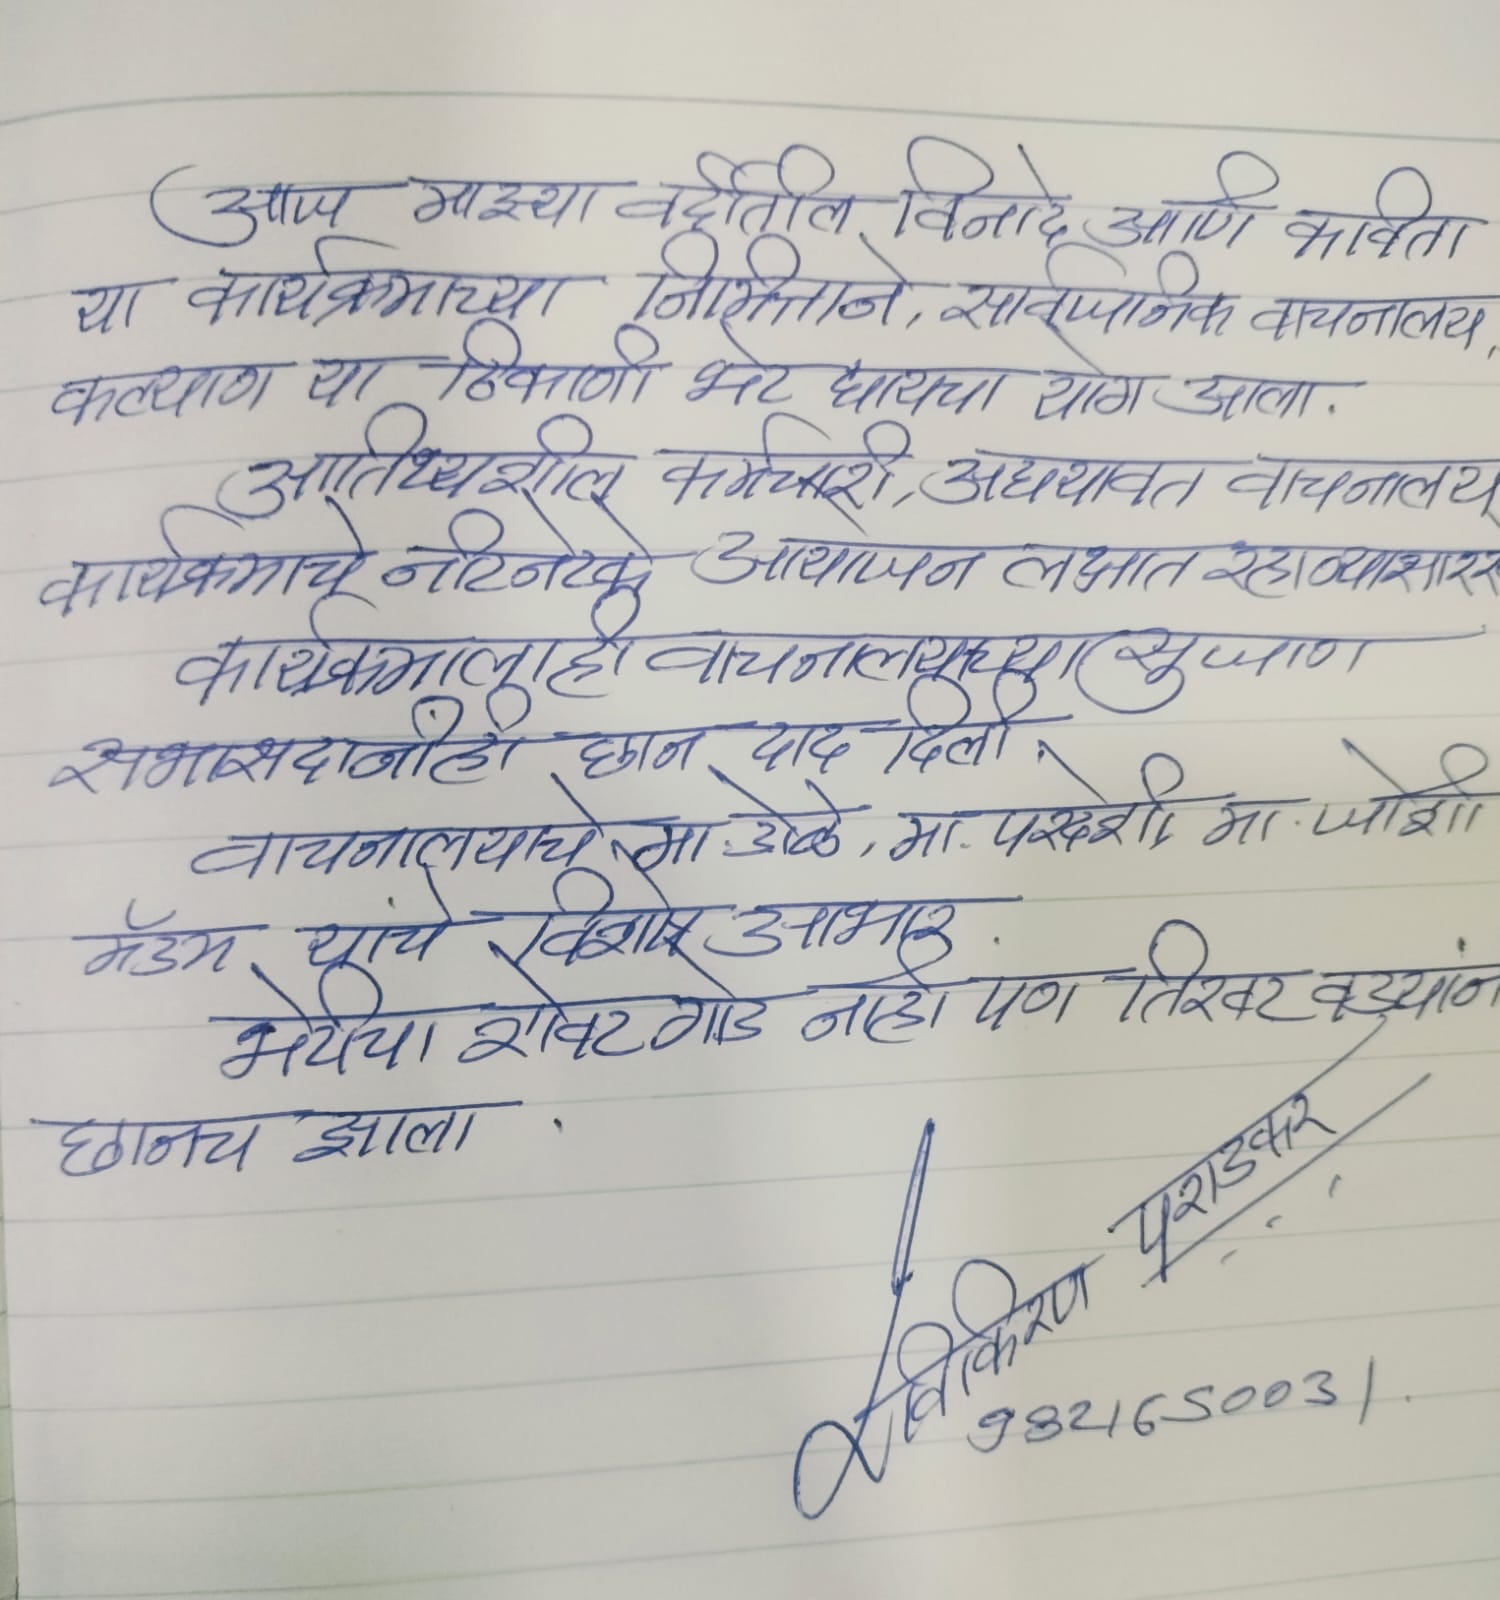 आज माझ्या वर्दीतील विनोद आणि कविता
या कार्यक्रमाच्या निमित्ताने, सार्वजनिक वाचनालय,
कल्याण या ठिकाणी भेट द्यायचा योग आला.
आतिथ्यशील कर्मचारी, अद्ययावत वाचनालय
कार्यक्रमाचे नीटनेटके आयोजन लक्षात रहाव्यासारखे
कार्यक्रमालाही वाचनालयाच्या सुजाण
सभासदानीही छान दाद दिली.
वाचनालयाचे मा. मा. परदेशी, मा. जोशी
मॅडम यांचे विशेष आभार.
भेटीचा शेवट गोड नाही पण तिखट वड्यांनी
छानच झाला.
रविकिरण पराडकर
9821650031.